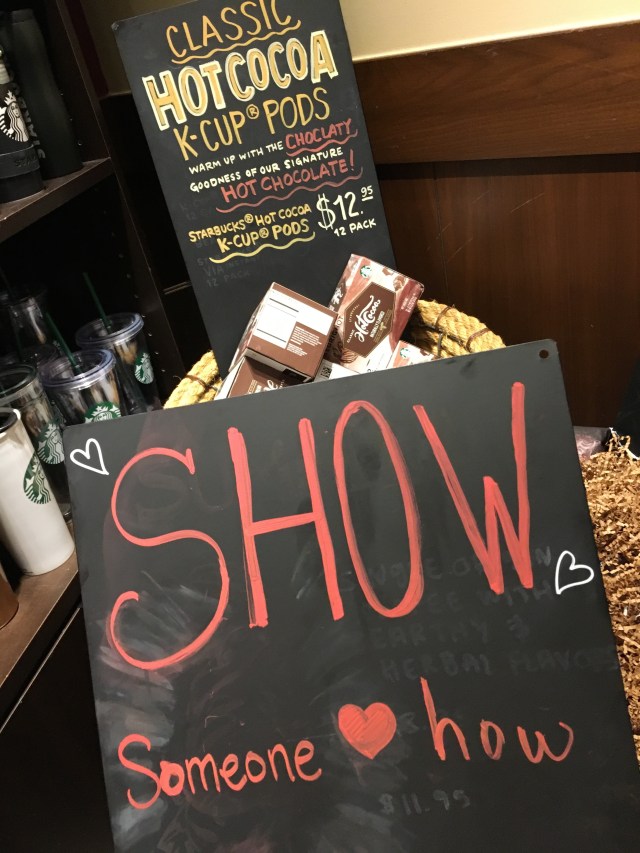 CLASSIC
HOT COCOA
K-CUP® PODS
WARM UP WITH THE CHOCLATY
GOODNESS OF OUR SIGNATURE
HOT CHOCOLATE!
STARBUCKS® HOT COCOA
K-CUP® PODS
$12.95
12 PACK
Hot Cocoa
SHOW
HERBAL FLAVORS
Someone ♥ how
$11.95